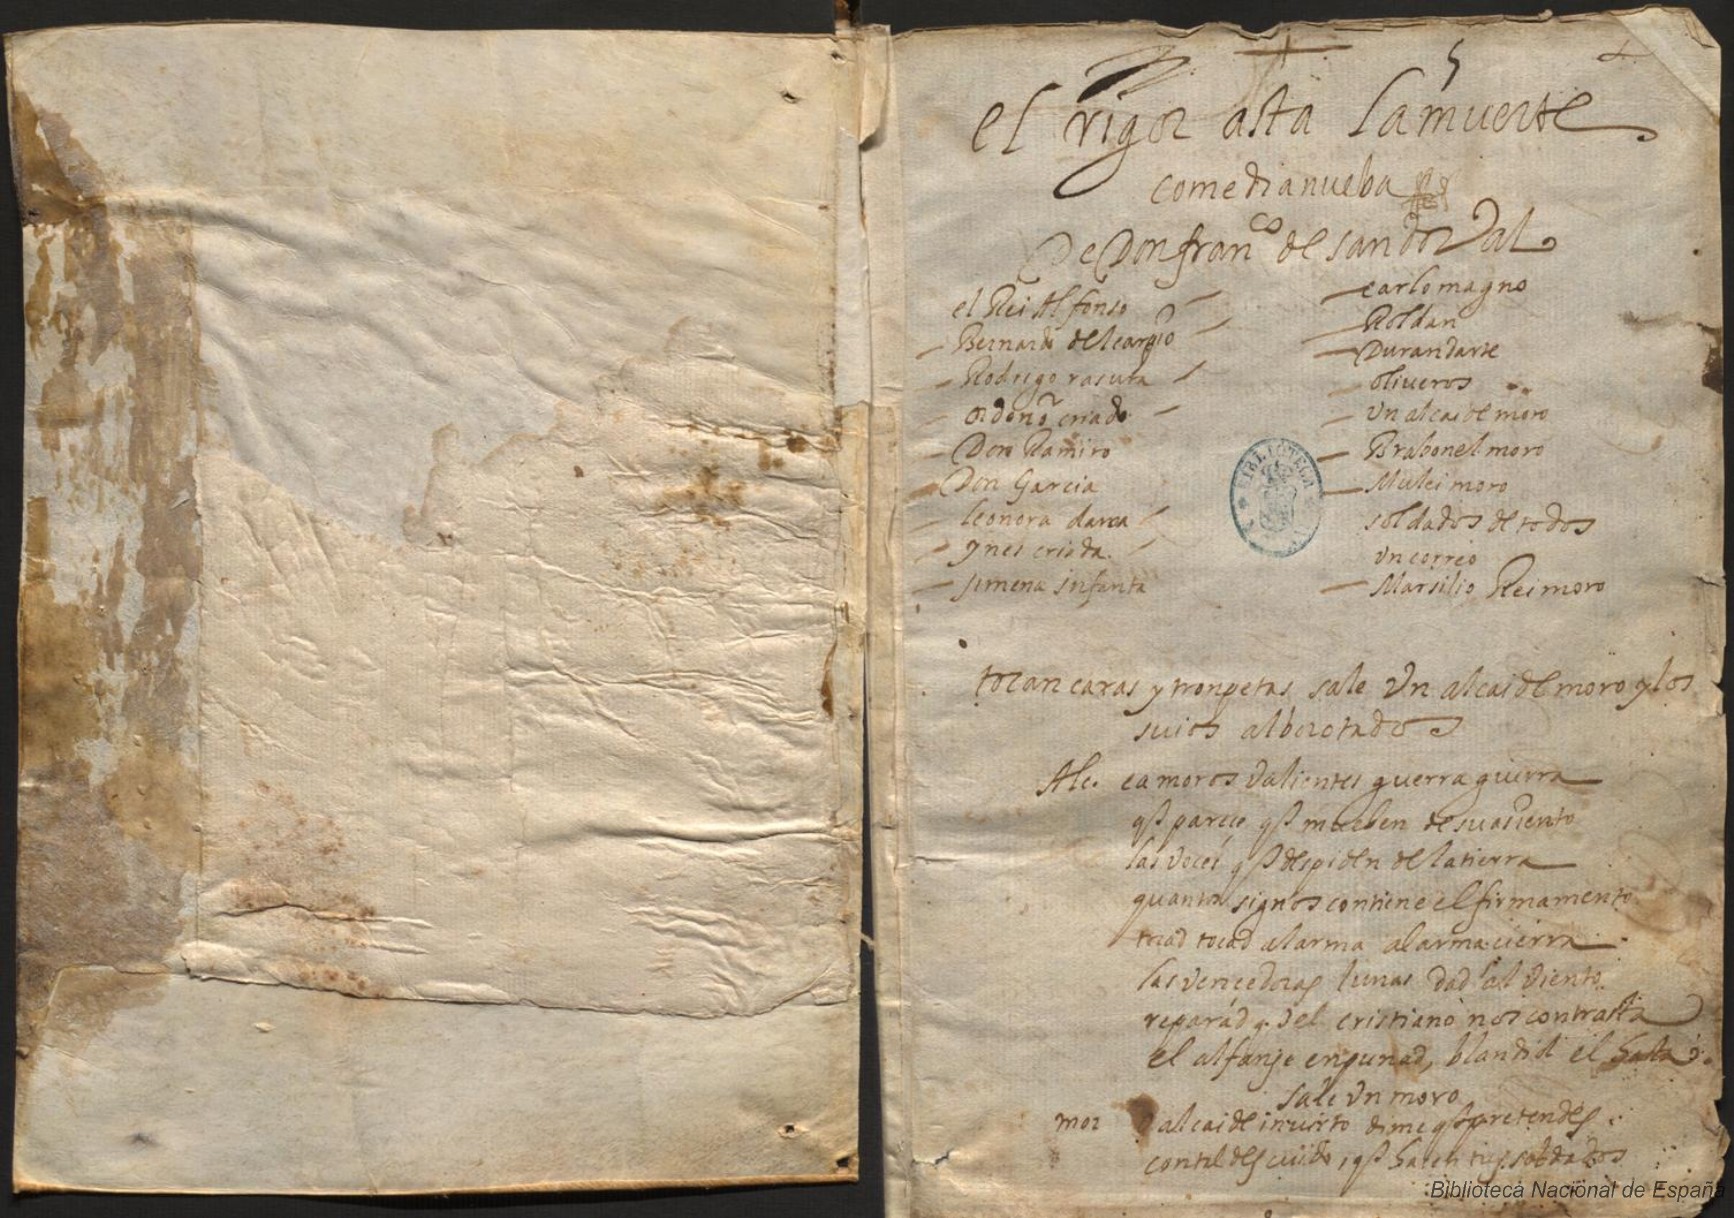 el rigor asta la muerte
comedia nueba
De Don fran.co de sandoval
el Rei Alfonso
Bernardo del carpio
Rodrigo rasura
ordoño criado
Don Ramiro
Don Garcia
leonora dama
ynes criada
jimena infanta
carlo magno
Roldan
Durandarte
oliueros
Vn alcaide moro
Brabonel moro
Mulei moro
soldados de todos
vn correo
Marsilio Rei moro
BIBLIOTECA
tocan caxas y tronpetas sale Vn alcaide moro y los
suios alborotados
Alc. ea moros valientes guerra guerra
q parece q mueben de su asiento
las voces q despiden de la tierra
quantos signos contiene el firmamento
tocad tocad al arma al arma cierra
las vencedoras lunas dad al viento
reparad q si el cristiano nos contrasta
el alfanje enpunad, blandid el hasta
sale vn moro
mor alcaide inuicto dime q pretendes
con tal descuido, q hacen tus soldados
Biblioteca Nacional de España